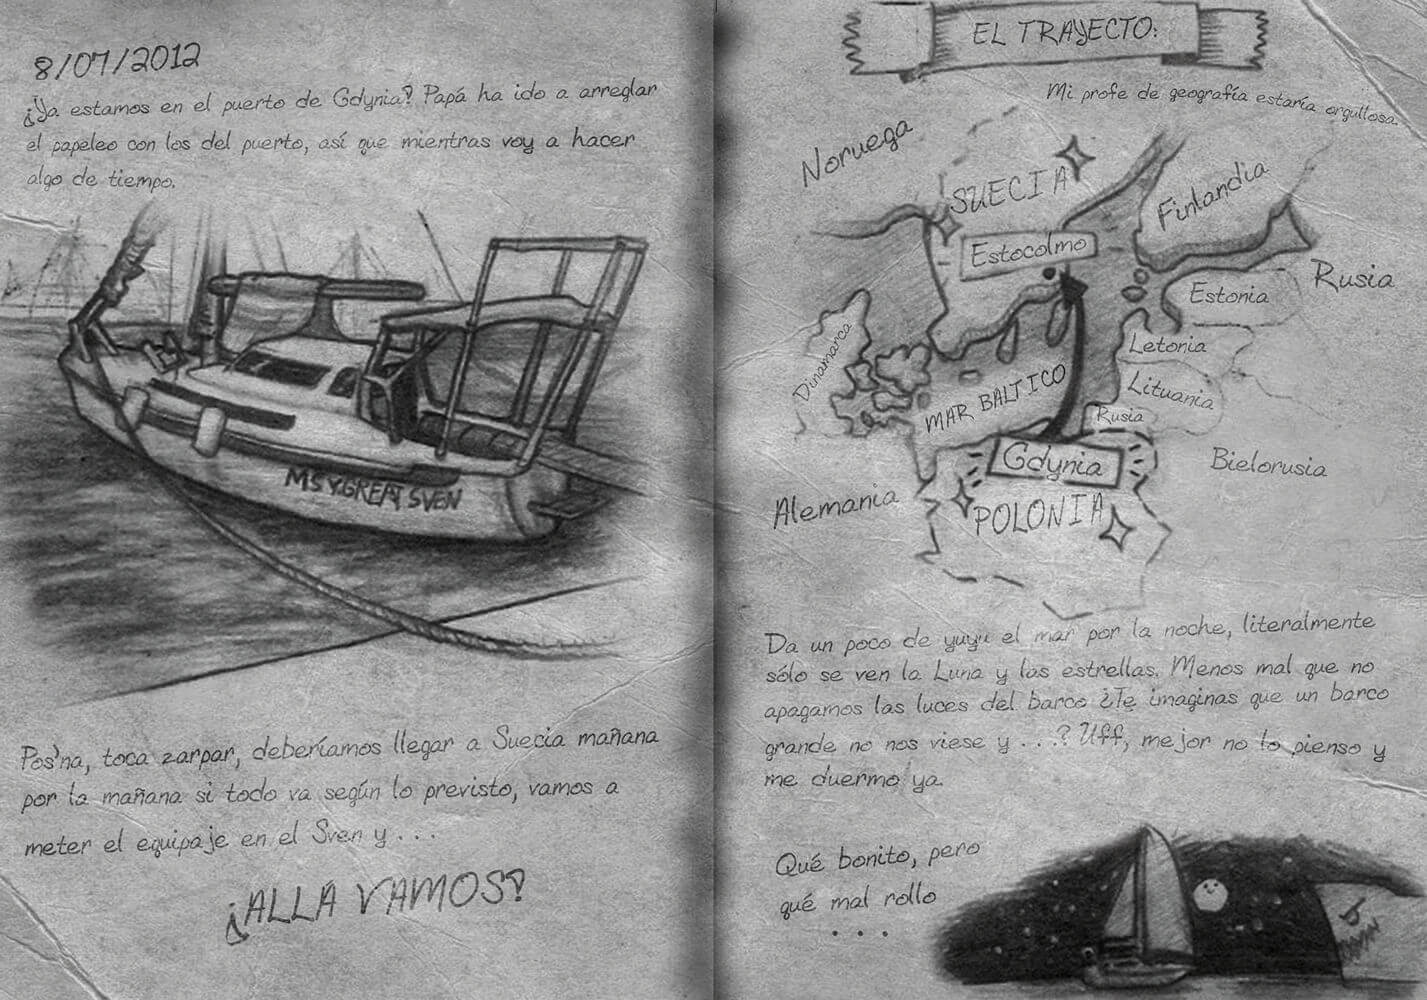 8/07/2012
¡Ya estamos en el puerto de Gdynia! Papá ha ido a arreglar
el papeleo con los del puerto, así que mientras voy a hacer
algo de tiempo.
MSY.GREAT SVEN
Pos'na, toca zarpar, deberíamos llegar a Suecia mañana
por la mañana si todo va según lo previsto, vamos a
meter el equipaje en el Sven y ...
¡ALLÁ VAMOS!
EL TRAYECTO:
Mi profe de geografía estaría orgullosa.
Noruega
SUECIA
Finlandia
Estocolmo
Rusia
Estonia
Dinamarca
Letonia
Lituania
MAR BALTICO
Rusia
Gdynia
Bielorusia
Alemania
POLONIA
Da un poco de yuyu el mar por la noche, literalmente
sólo se ven la Luna y las estrellas. Menos mal que no
apagamos las luces del barco ¿Te imaginas que un barco
grande no nos viese y ...? Uff, mejor no lo pienso y
me duermo ya.
Qué bonito, pero
qué mal rollo
...